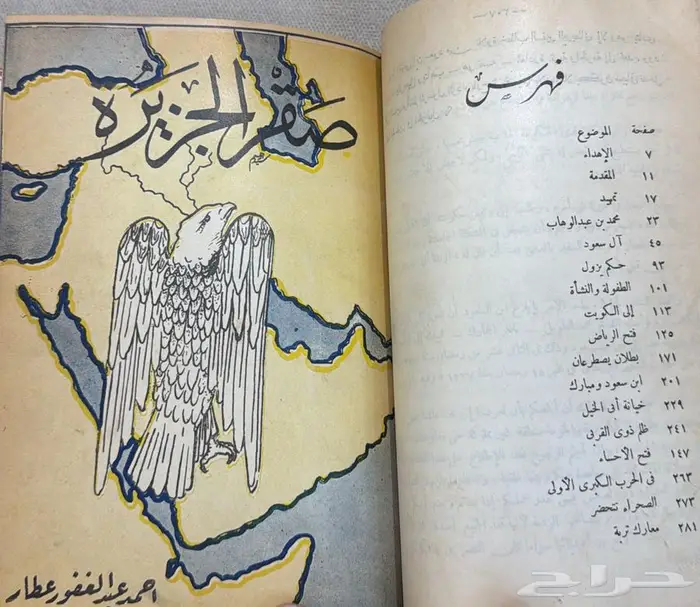 صقر الجزيرة
احمد عبد الغفور عطار
فهرس
صفحة الموضوع
٧ الإهداء
١١ المقدمة
١٧ تمهيد
٢٣ محمد بن عبد الوهاب
٤٥ آل سعود
٩٣ حكم يزول
١٠١ الطفولة والنشأة
١١٣ إلى الكويت
١٢٥ فتح الرياض
١٧١ بطلان يصطرعان
٢٠١ ابن سعود ومبارك
٢٢٩ خيانة أبى الخيل
٢٤١ ظلم ذوى القربى
١٤٧ فتح الأحساء
٢٦٣ فى الحرب الكبرى الأولى
٢٧٣ الصحراء تتحضر
٢٨١ معارك تربة
حراج